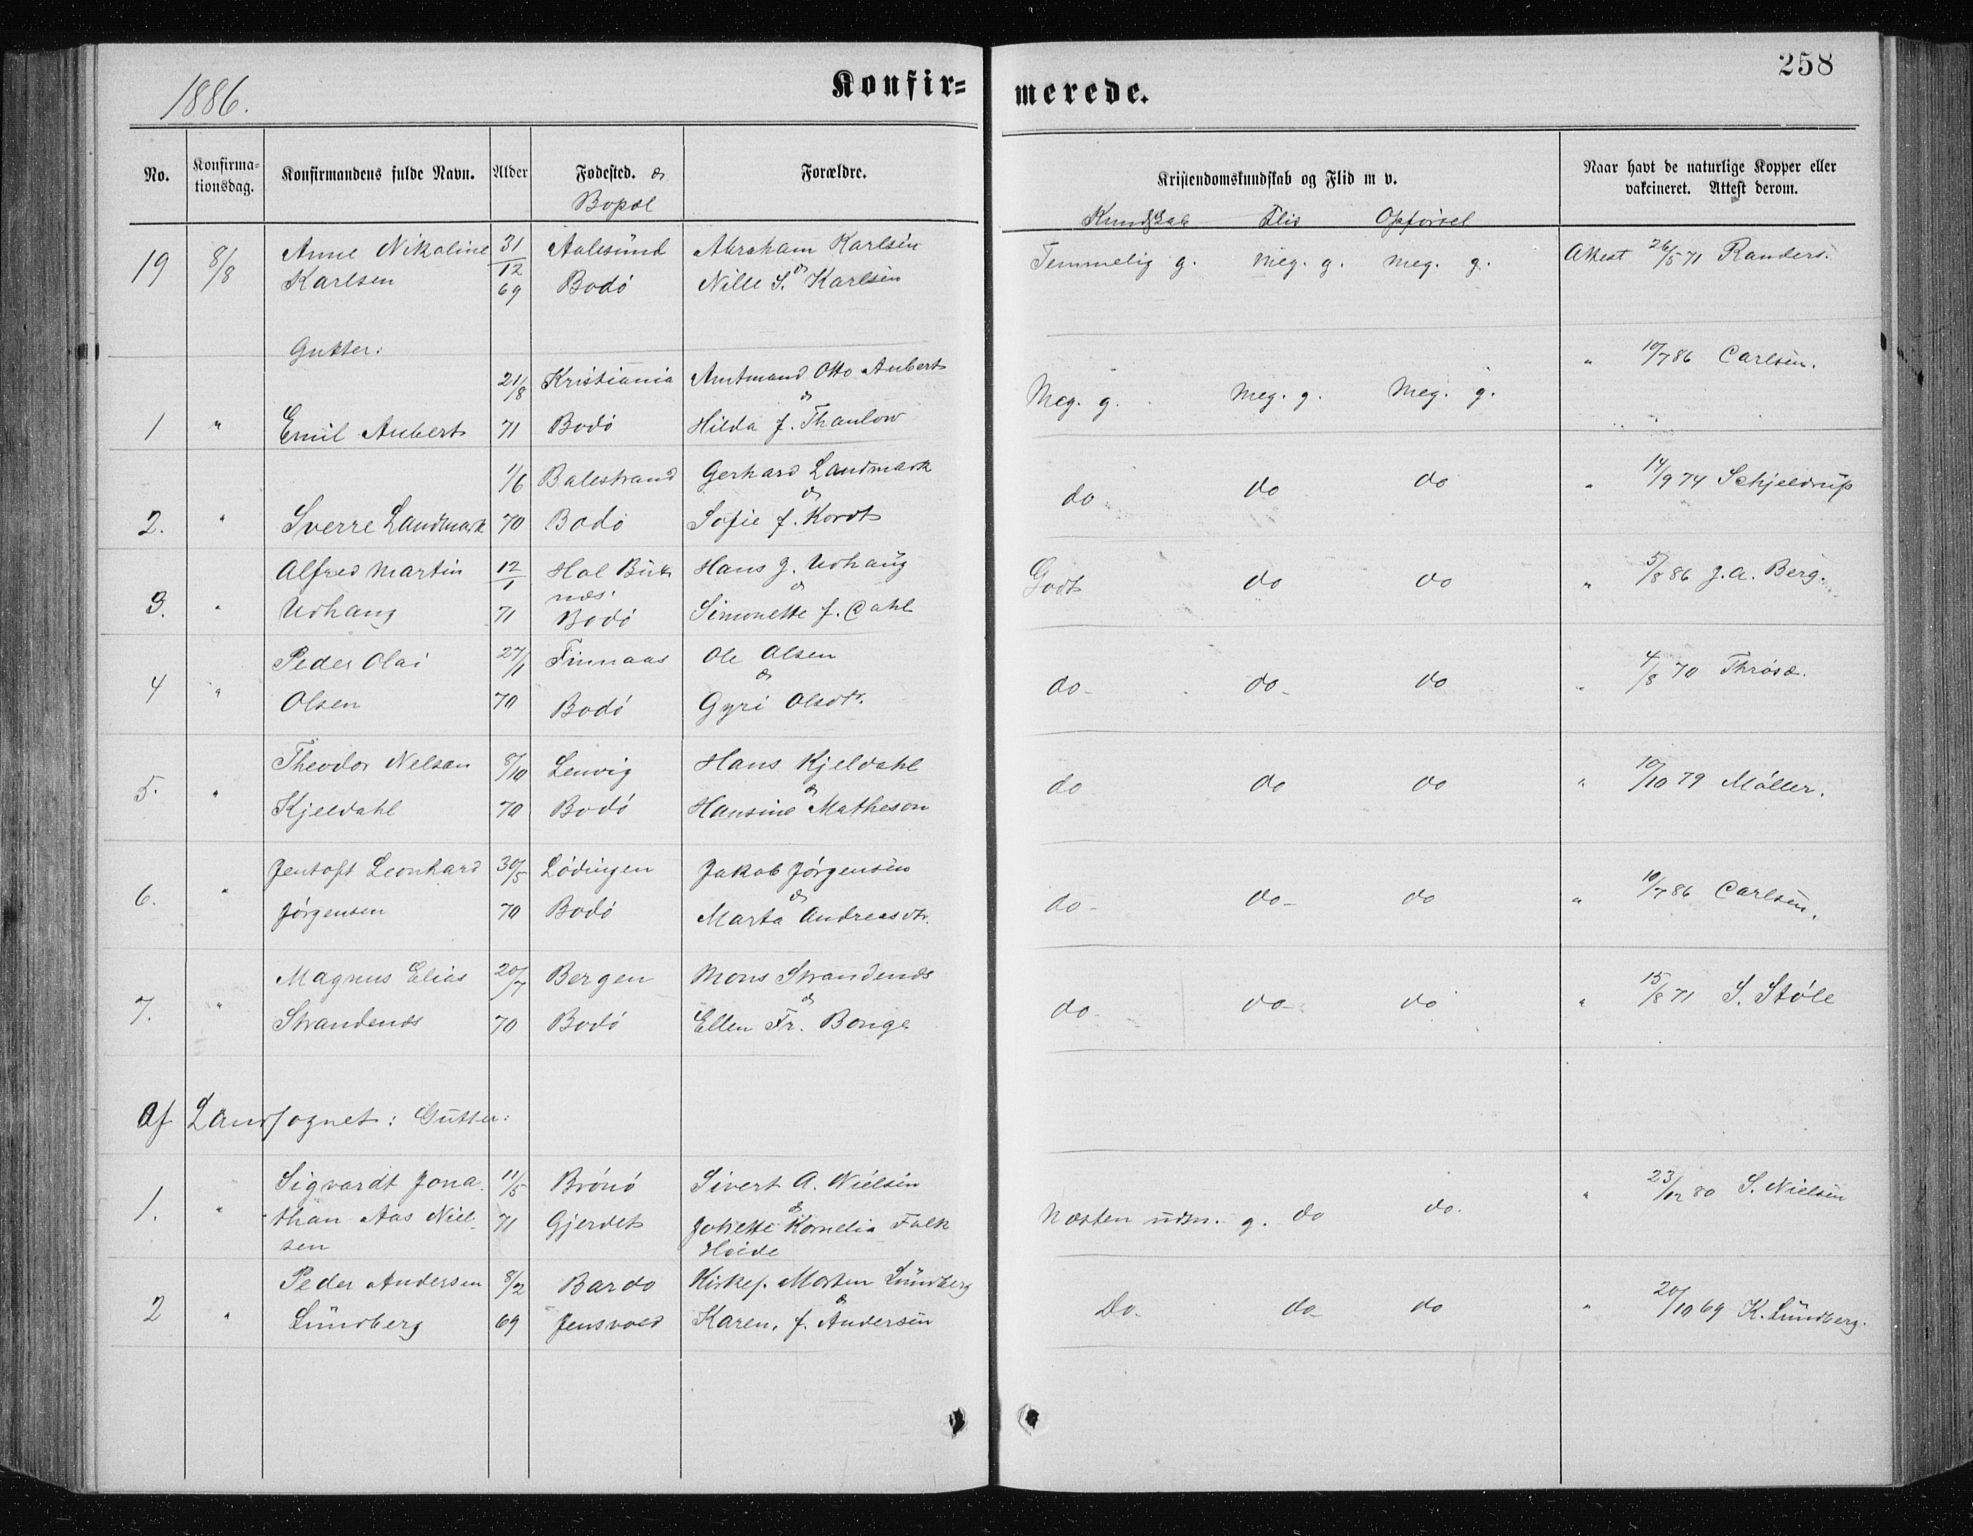 258
1886.
Konfir=
merede.
No.
Konfirma-
tionsdag.
Konfirmandens fulde Navn.
Alder
Fødested. &
Bopæl
Forældre.
Kristendomskundskab og Flid m v.
Kundskab Flid Opførsel
Naar havt de naturlige Kopper eller
vakcineret. Attest derom.
19 8/8 Anne Nikoline 31/12 Aalesund Abraham Karlsen
Karlsen 69 Bodø Nille S. & Karlsen
Temmelig g. meg. g. meg. g. Attest 26/5 71 Randers.
Gutter:
21/8 Kristiania Amtmand Otto Aubert
&
1 " Emil Aubert 71 Bodø Hilda f. Thaulow
Meg. g. Meg. g. Meg. g. " 10/7 86 Carlsen.
1/6 Balestrand Gerhard Landmark
&
2. " Sverre Landmark 70 Bodø Sofie f. Kordt
do do do " 14/9 74 Schjeldrup
Alfred Martin 12/1 Hol Buk Hans J. Udhaug
næs. &
3. " Udhaug 71 Bodø Simonette f. Dahl
Godt do do " 5/8 86 J. A. Berg.
Peder Olai 27/1 Finnaas Ole Olsen
&
4 " Olsen 70 Bodø Gyri Olsdtr.
do do do " 4/8 70
Theodor Nelsan 8/10 Lenvig Hans Kjeldahl
&
5. " Kjeldahl 70 Bodø Hansine Matheson
do do do " 10/10 79 Møller.
Jentoft Leonhard 30/5 Lødingen Jakob Jørgensen
&
6. " Jørgensen 70 Bodø Marta Andreasdtr.
do do do " 10/7 86 Carlsen.
Magnus Elias 20/7 Bergen Mons Strandenæs
&
7. " Strandenæs 70 Bodø Ellen Fr. Bonge
do do do " 15/8 71 S. Støle
Af Landsognet: Gutter:
Sigvardt Jona 11/5 Brønø Sivert A. Nielsen
&
1. " than Aas Niel 71 Gjerdet Jokette Kornelia Falk
sen Høide
Næsten udm. g. do do. " 23/12 80 S. Nielsen
Peder Andersen 8/2 Bardo Kirkes. Morten Lündberg
&
2 " Lündberg 69 Jensvold Karen, f. Andersen
Do. do do " 20/10 69 K. Lündberg.